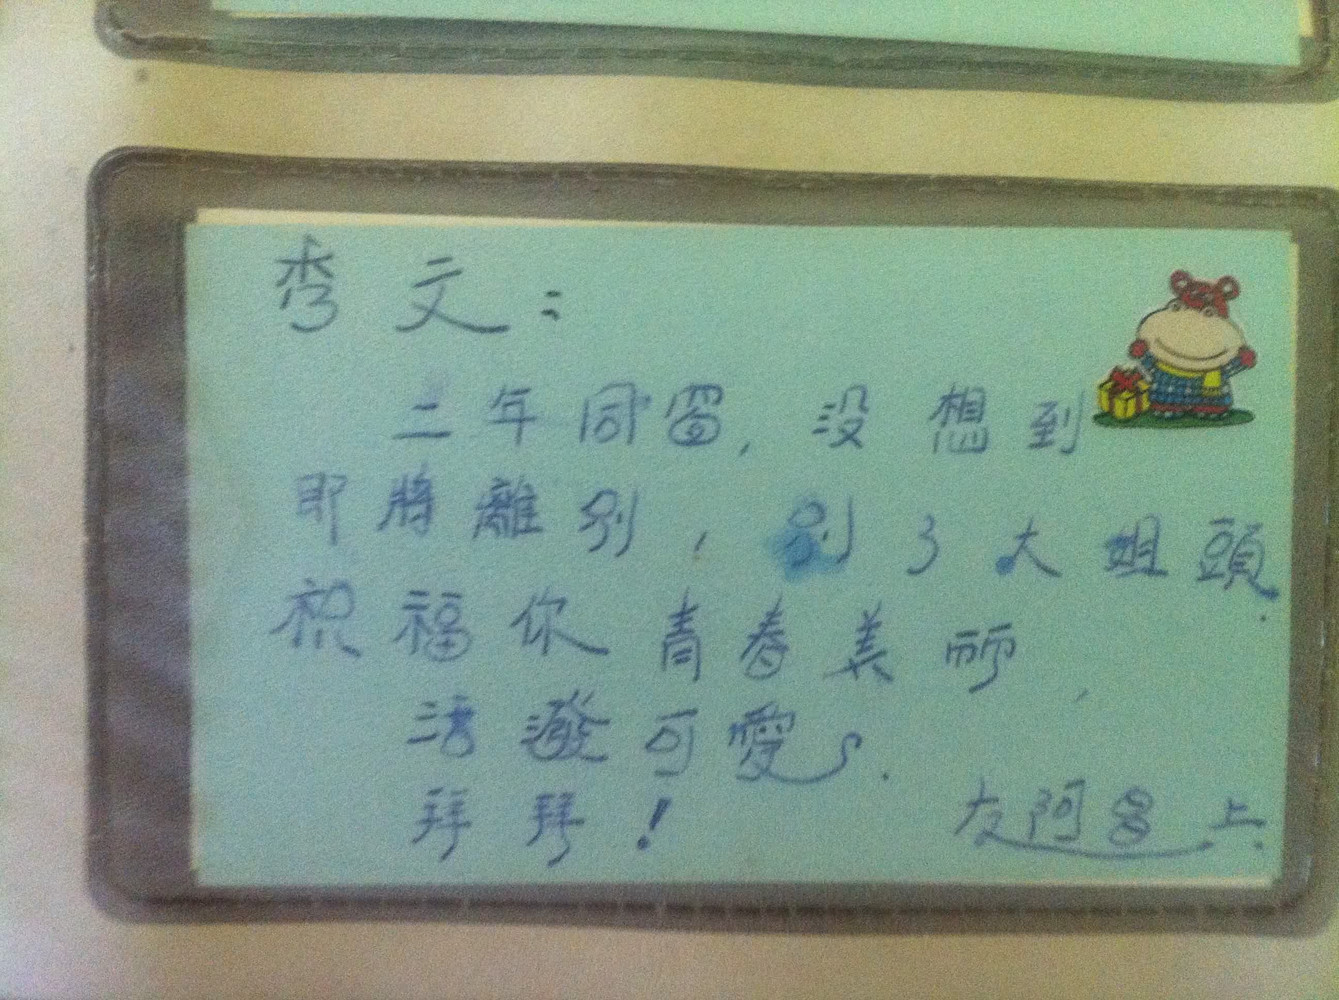 秀文：
三年同窗，没想到
即將離別，別了大姐頭.
祝福你青春美丽，
活潑可愛.
拜拜！
友阿昌上.